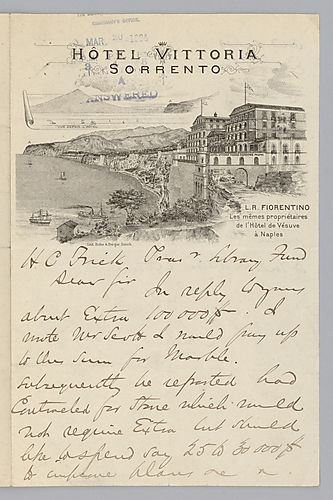 MAR 20 1894
ANSWERED
HÔTEL VITTORIA
SORRENTO
VUE DEPUIS L'HÔTEL
L.R. FIORENTINO
Les mêmes propriétaires
de l'Hôtel de Vésuve
à Naples
H C Frick Treas. Library Fund
Dear Sir
In reply to yours
about Extra 100000$. I
wrote Mr Scott I would pay up
to this sum for Marble.
Subsequently he reported had
Contracted for Stone which would
not require Extra but should
like to spend say 25 to 30 000$
to improve plans